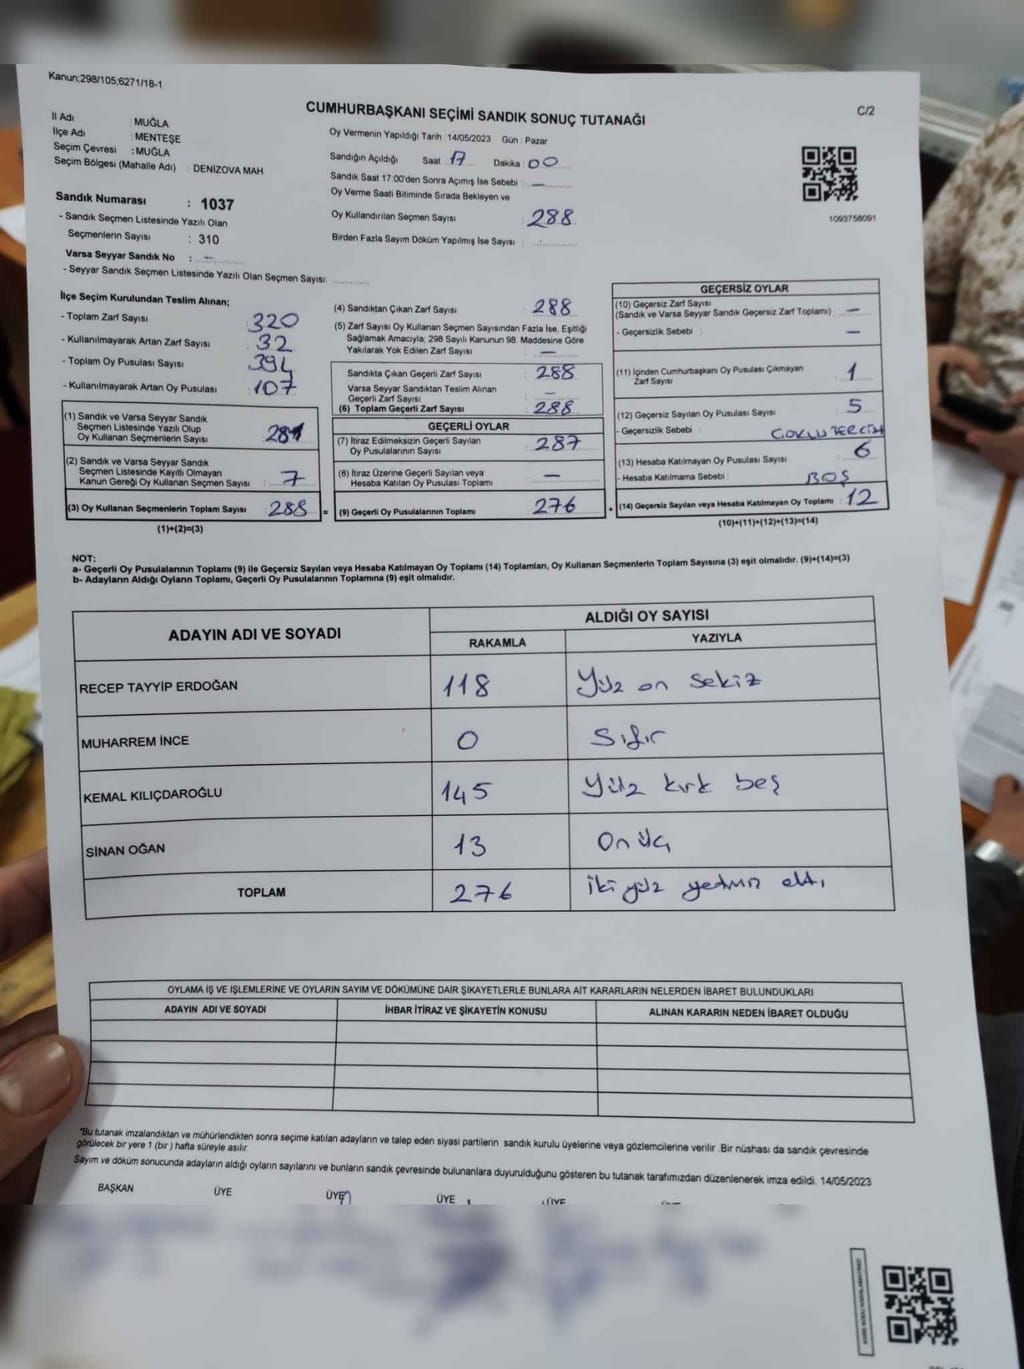 Kanun:298/105;6271/18-1
C/2
CUMHURBAŞKANI SEÇİMİ SANDIK SONUÇ TUTANAĞI
İl Adı : MUĞLA
İlçe Adı : MENTEŞE
Seçim Çevresi : MUĞLA
Seçim Bölgesi (Mahalle Adı) : DENİZOVA MAH
Sandık Numarası : 1037
- Sandık Seçmen Listesinde Yazılı Olan
Seçmenlerin Sayısı : 310
Varsa Seyyar Sandık No : -
- Seyyar Sandık Seçmen Listesinde Yazılı Olan Seçmen Sayısı:
Oy Vermenin Yapıldığı Tarih : 14/05/2023 Gün : Pazar
Sandığın Açıldığı Saat 17 Dakika : 00
Sandık Saat 17:00'den Sonra Açımış İse Sebebi : -
Oy Verme Saati Bitiminde Sırada Bekleyen ve
Oy Kullandırılan Seçmen Sayısı : 288
Birden Fazla Sayım Döküm Yapılmış İse Sayısı :
1093758091
İlçe Seçim Kurulundan Teslim Alınan;
- Toplam Zarf Sayısı 320
- Kullanılmayarak Artan Zarf Sayısı 32
- Toplam Oy Pusulası Sayısı 394
- Kullanılmayarak Artan Oy Pusulası 107
(1) Sandık ve Varsa Seyyar Sandık
Seçmen Listesinde Yazılı Olup
Oy Kullanan Seçmenlerin Sayısı : 281
(2) Sandık ve Varsa Seyyar Sandık
Seçmen Listesinde Kayıtlı Olmayan
Kanun Gereği Oy Kullanan Seçmen Sayısı : 7
(3) Oy Kullanan Seçmenlerin Toplam Sayısı : 288 =
(1)+(2)=(3)
(4) Sandıktan Çıkan Zarf Sayısı : 288
(5) Zarf Sayısı Oy Kullanan Seçmen Sayısından Fazla İse, Eşitliği
Sağlamak Amacıyla; 298 Sayılı Kanunun 98. Maddesine Göre
Yakılarak Yok Edilen Zarf Sayısı : -
Sandıkta Çıkan Geçerli Zarf Sayısı : 288
Varsa Seyyar Sandıktan Teslim Alınan
Geçerli Zarf Sayısı : -
(6) Toplam Geçerli Zarf Sayısı : 288
GEÇERLİ OYLAR
(7) İtiraz Edilmeksizin Geçerli Sayılan
Oy Pusulalarının Sayısı : 287
(8) İtiraz Üzerine Geçerli Sayılan veya
Hesaba Katılan Oy Pusulası Toplamı : -
(9) Geçerli Oy Pusulalarının Toplamı : 276 +
GEÇERSİZ OYLAR
(10) Geçersiz Zarf Sayısı
(Sandık ve Varsa Seyyar Sandık Geçersiz Zarf Toplamı) : -
- Geçersizlik Sebebi : -
(11) İçinden Cumhurbaşkanı Oy Pusulası Çıkmayan
Zarf Sayısı : 1
(12) Geçersiz Sayılan Oy Pusulası Sayısı : 5
- Geçersizlik Sebebi : ÇOKLU TERCİH
(13) Hesaba Katılmayan Oy Pusulası Sayısı : 6
- Hesaba Katılmama Sebebi : BOŞ
(14) Geçersiz Sayılan veya Hesaba Katılmayan Oy Toplamı : 12
(10)+(11)+(12)+(13)=(14)
NOT:
a- Geçerli Oy Pusulalarının Toplamı (9) ile Geçersiz Sayılan veya Hesaba Katılmayan Oy Toplamı (14) Toplamları, Oy Kullanan Seçmenlerin Toplam Sayısına (3) eşit olmalıdır. (9)+(14)=(3)
b- Adayların Aldığı Oyların Toplamı, Geçerli Oy Pusulalarının Toplamına (9) eşit olmalıdır.
ADAYIN ADI VE SOYADI
ALDIĞI OY SAYISI
RAKAMLA YAZIYLA
RECEP TAYYİP ERDOĞAN 118 Yüz on sekiz
MUHARREM İNCE 0 Sıfır
KEMAL KILIÇDAROĞLU 145 Yüz kırk beş
SİNAN OĞAN 13 On üç
TOPLAM 276 iki yüz yetmiş altı
OYLAMA İŞ VE İŞLEMLERİNE VE OYLARIN SAYIM VE DÖKÜMÜNE DAİR ŞİKAYETLERLE BUNLARA AİT KARARLARIN NELERDEN İBARET BULUNDUKLARI
ADAYIN ADI VE SOYADI İHBAR İTİRAZ VE ŞİKAYETİN KONUSU ALINAN KARARIN NEDEN İBARET OLDUĞU
*Bu tutanak imzalandıktan ve mühürlendikten sonra seçime katılan adayların ve talep eden siyasi partilerin sandık kurulu üyelerine veya gözlemcilerine verilir .Bir nüshası da sandık çevresinde
görülecek bir yere 1 (bir ) hafta süreyle asılır.
Sayım ve döküm sonucunda adayların aldığı oyların sayılarını ve bunların sandık çevresinde bulunanlara duyurulduğunu gösteren bu tutanak tarafımızdan düzenlenerek imza edildi. 14/05/2023
BAŞKAN ÜYE ÜYE ÜYE ÜYE